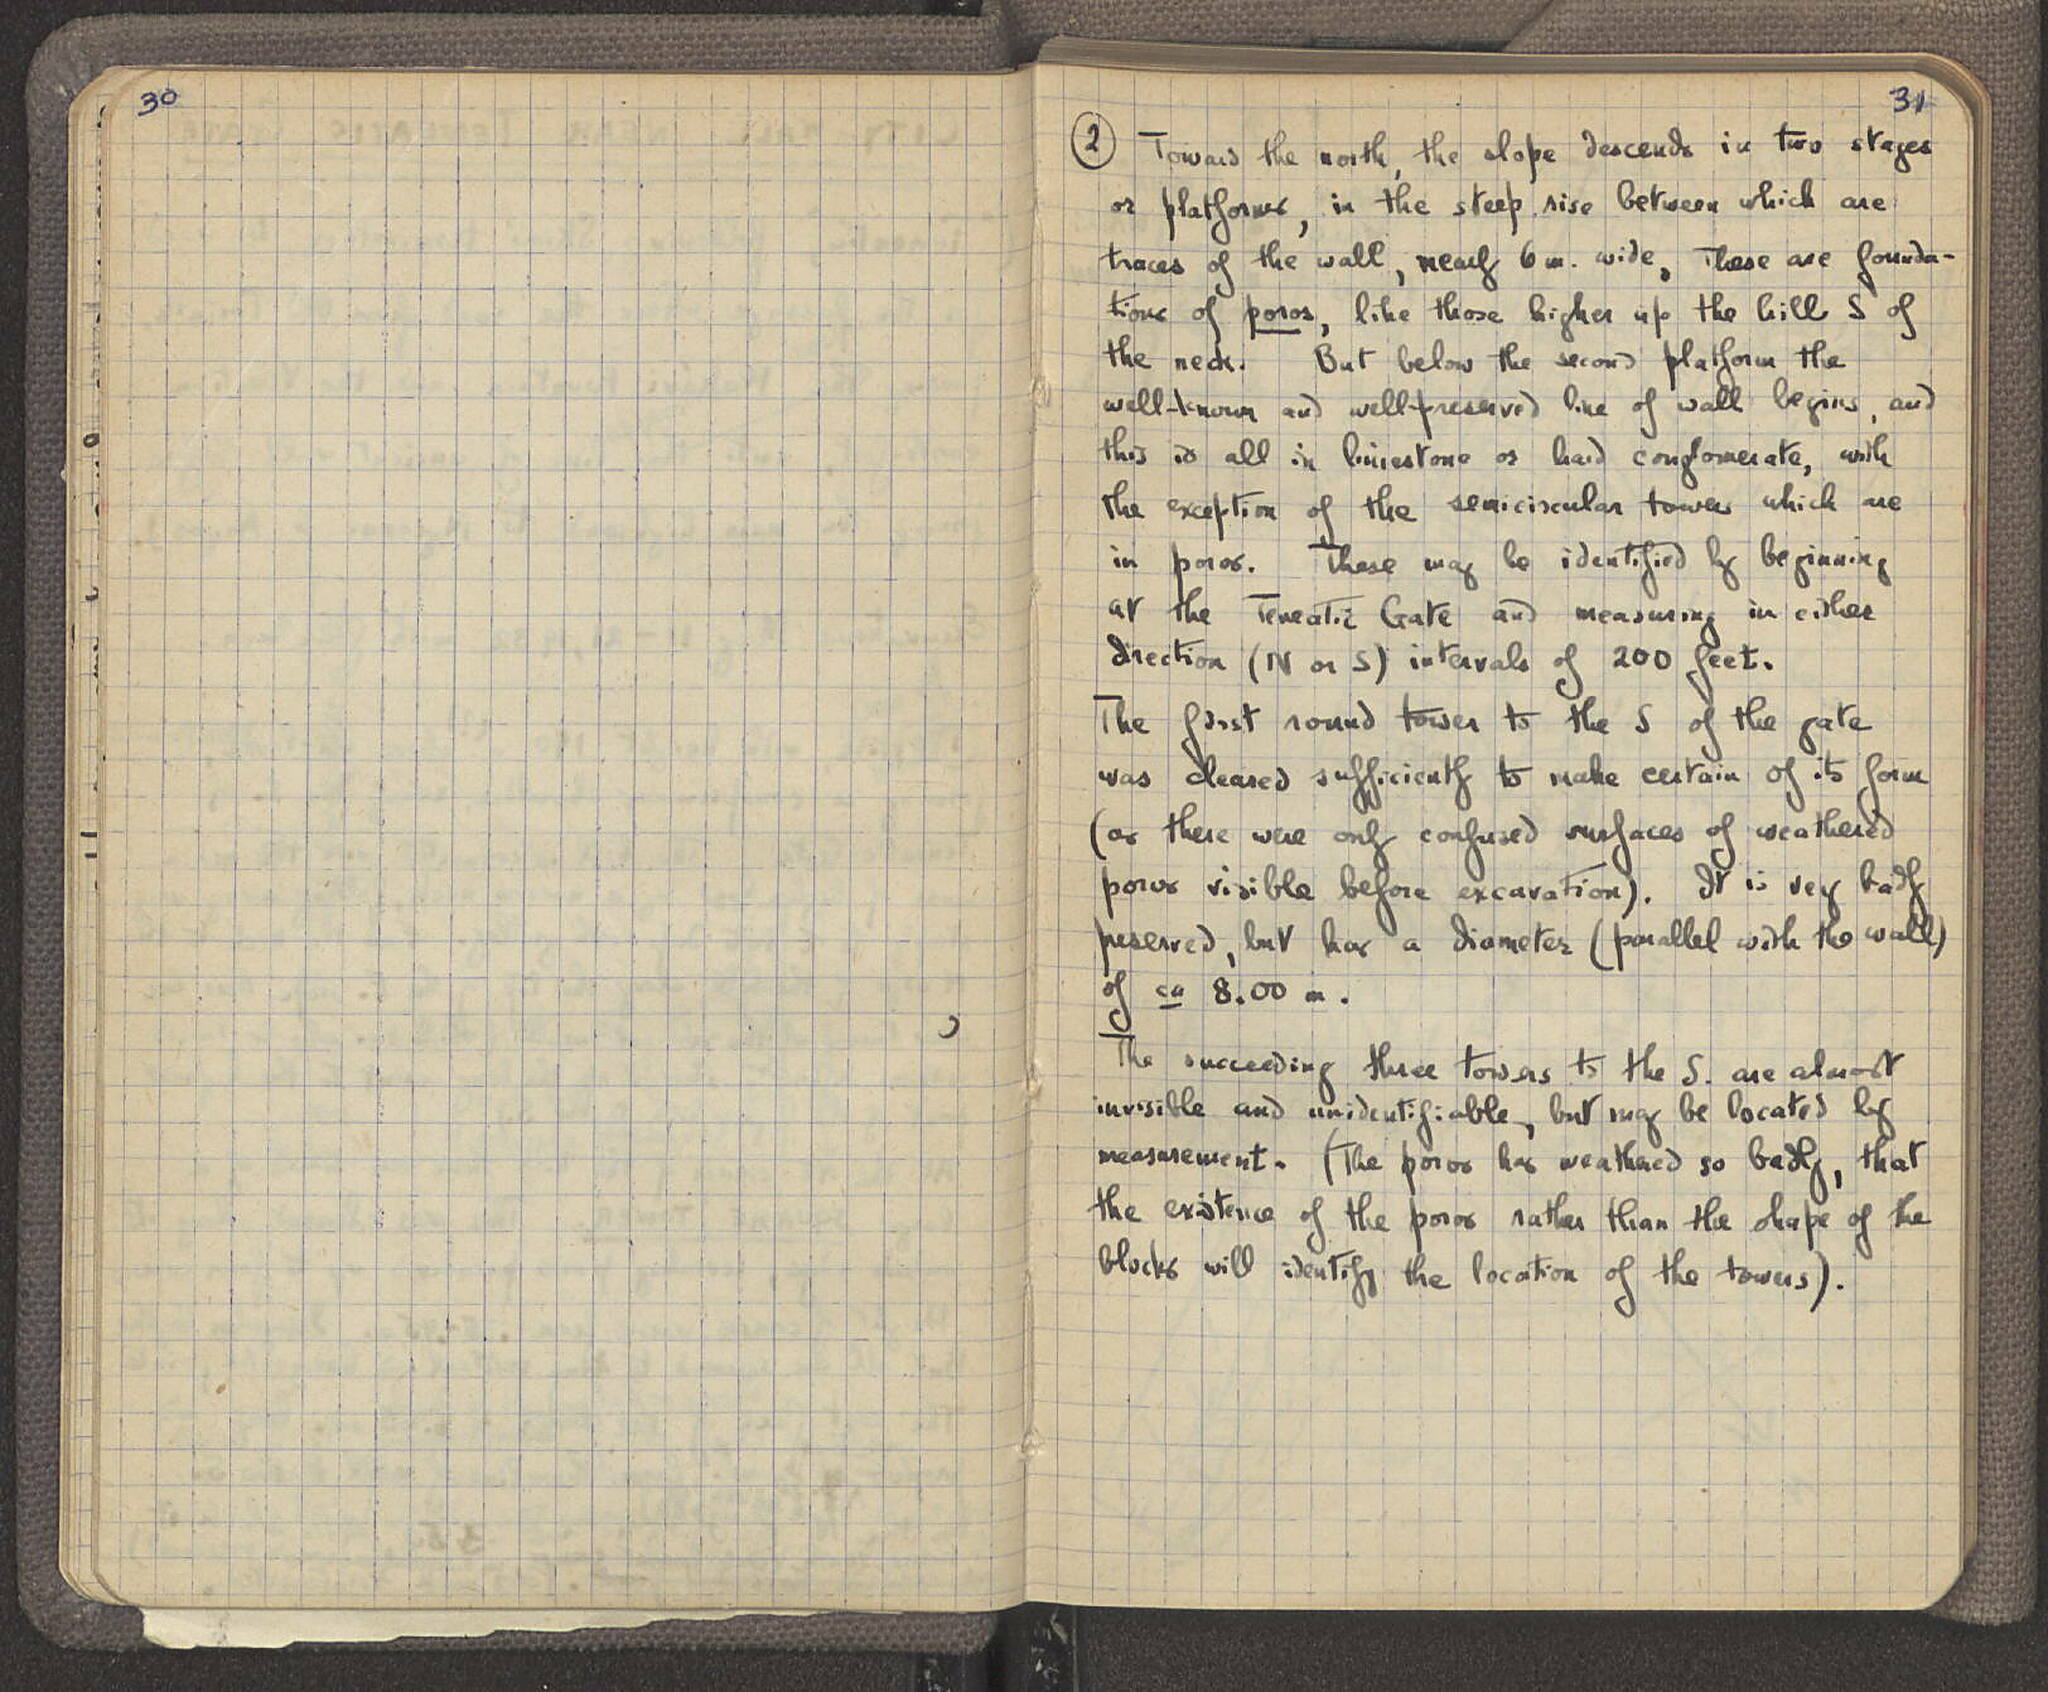 30
31
② Toward the north, the slope descends in two stages
or platforms, in the steep rise between which are
traces of the wall, nearly 6 m. wide. These are founda-
tions of poros, like those higher up the hill S of
the neck. But below the second platform the
well-known and well-preserved line of wall begins, and
this is all in limestone or hard conglomerate, with
the exception of the semicircular towers which are
in poros. These may be identified by beginning
at the Teneatic Gate and measuring in either
direction (N or S) intervals of 200 feet.
The first round tower to the S of the gate
was cleared sufficiently to make certain of its form
(as there were only confused surfaces of weathered
poros visible before excavation). It is very badly
preserved, but has a diameter (parallel with the wall)
of ca 8.00 m.
The succeeding three towers to the S. are almost
invisible and unidentifiable, but may be located by
measurement. (The poros has weathered so badly, that
the existence of the poros rather than the shape of the
blocks will identify the location of the towers).